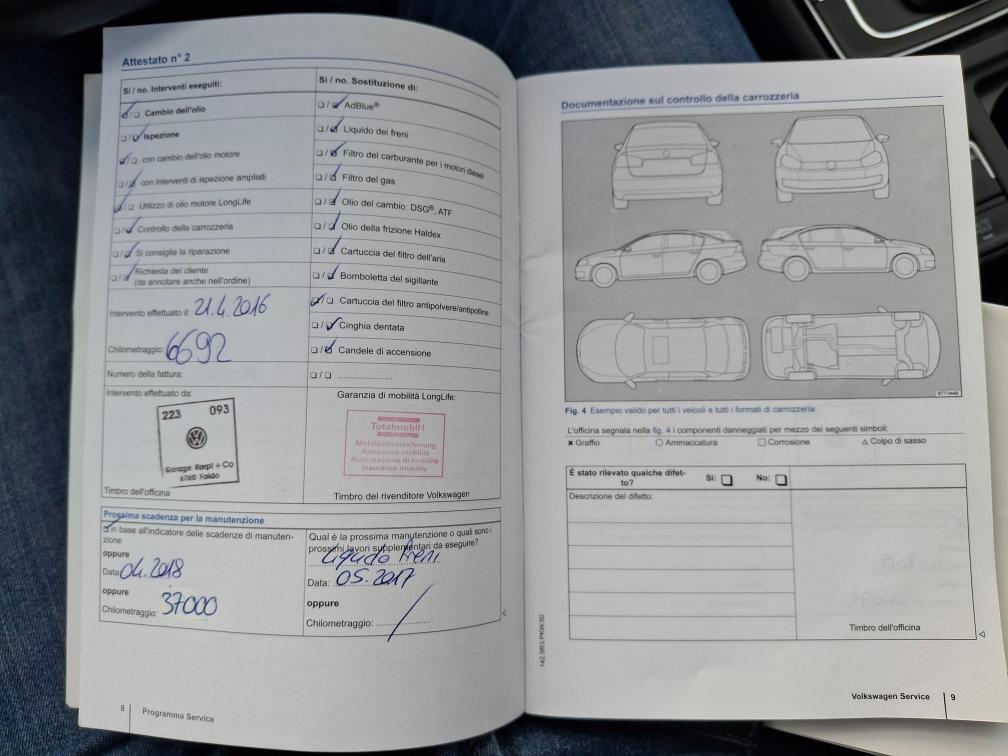 Attestato n° 2
Si / no. Interventi eseguiti:
Cambio dell'olio
Ispezione
con cambio dell'olio motore
con interventi di ispezione ampliati
Utilizzo di olio motore LongLife
Controllo della carrozzeria
Si consiglia la riparazione
Richiesta del cliente
(da annotare anche nell'ordine)
Intervento effettuato il: 21.4.2016
Chilometraggio: 6692
Numero della fattura:
Intervento effettuato da:
223 093
Garage Karpf + Co
Faido
Timbro dell'officina
Si / no. Sostituzione di:
AdBlue®
Liquido dei freni
Filtro del carburante per i motori diesel
Filtro del gas
Olio del cambio: DSG®, ATF
Olio della frizione Haldex
Cartuccia del filtro dell'aria
Bomboletta del sigillante
Cartuccia del filtro antipolvere/antipolline
Cinghia dentata
Candele di accensione
Garanzia di mobilità LongLife:
Totalmobil!
Mobilitätsversicherung
Assurance mobilité
Assicurazione di mobilità
Insurance mobility
Timbro del rivenditore Volkswagen
Prossima scadenza per la manutenzione
in base all'indicatore delle scadenze di manuten-
zione
oppure
Data: 04.2018
oppure
Chilometraggio: 37000
Qual è la prossima manutenzione o quali sono i
prossimi lavori supplementari da eseguire?
Liquido freni
Data: 05.2017
oppure
Chilometraggio:
8 Programma Service
Documentazione sul controllo della carrozzeria
Fig. 4 Esempio valido per tutti i veicoli e tutti i formati di carrozzeria
L'officina segnala nella fig. 4 i componenti danneggiati per mezzo dei seguenti simboli:
Graffio Ammaccatura Corrosione Colpo di sasso
È stato rilevato qualche difet-
to? Si: No:
Descrizione del difetto:
Timbro dell'officina
142.5R3.PKW.50
Volkswagen Service 9